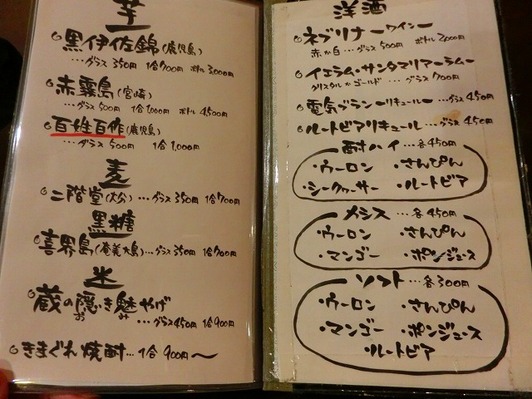 芋
黒伊佐錦(鹿児島)
…グラス 350円 1合700円 ボトル 3,000円
赤霧島(宮崎)
…グラス 500円 1合 1,000円 ボトル 4,500円
百姓百作(鹿児島)
…グラス 500円 1合 1,000円
麦
二階堂(大分)…グラス 350円 1合700円
黒糖
喜界島(奄美大島)…グラス 350円 1合700円
米
蔵の隠し魅やげ
…グラス450円 1合900円
きまぐれ焼酎…1合 900円〜
洋酒
ネブリナーワイン
赤か白…グラス 500円 ボトル 2,000円
イエラム・サンタマリアーラムー
クリスタルorゴールド…グラス 700円
電気ブランーリキュールー…グラス 450円
ルートビアリキュール…グラス 450円
酎ハイ…各450円
・ウーロン ・さんぴん
・シークヮーサー ・ルートビア
メシス…各450円
・ウーロン ・さんぴん
・マンゴー ・ポンジュース
ソフト…各300円
・ウーロン ・さんぴん
・マンゴー ・ポンジュース
・ルートビア